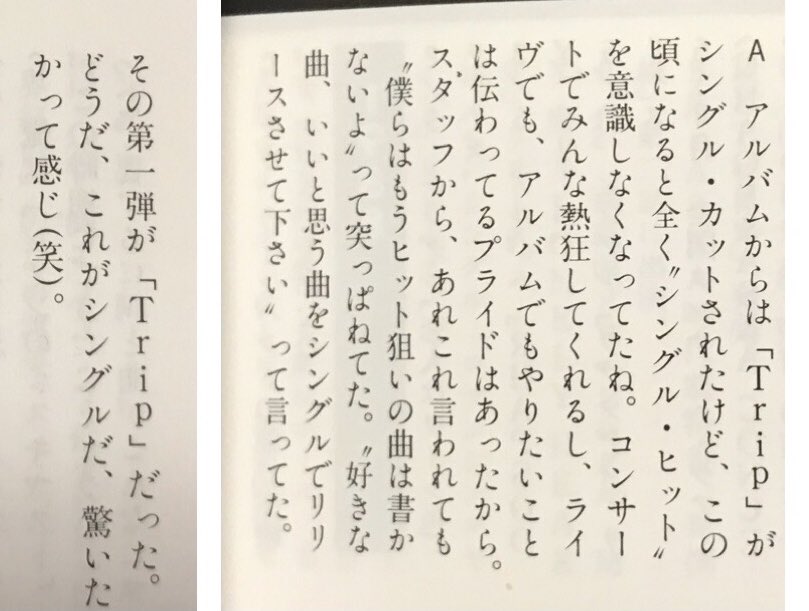 A アルバムからは「Trip」が
シングル・カットされたけど、この
頃になると全く〝シングル・ヒット〟
を意識しなくなってたね。コンサー
トでみんな熱狂してくれるし、ライ
ヴでも、アルバムでもやりたいこと
は伝わってるプライドはあったから。
スタッフから、あれこれ言われても
〝僕らはもうヒット狙いの曲は書か
ないよ〟って突っぱねてた。〝好きな
曲、いいと思う曲をシングルでリリ
ースさせて下さい〟って言ってた。
その第一弾が「Trip」だった。
どうだ、これがシングルだ、驚いた
かって感じ(笑)。